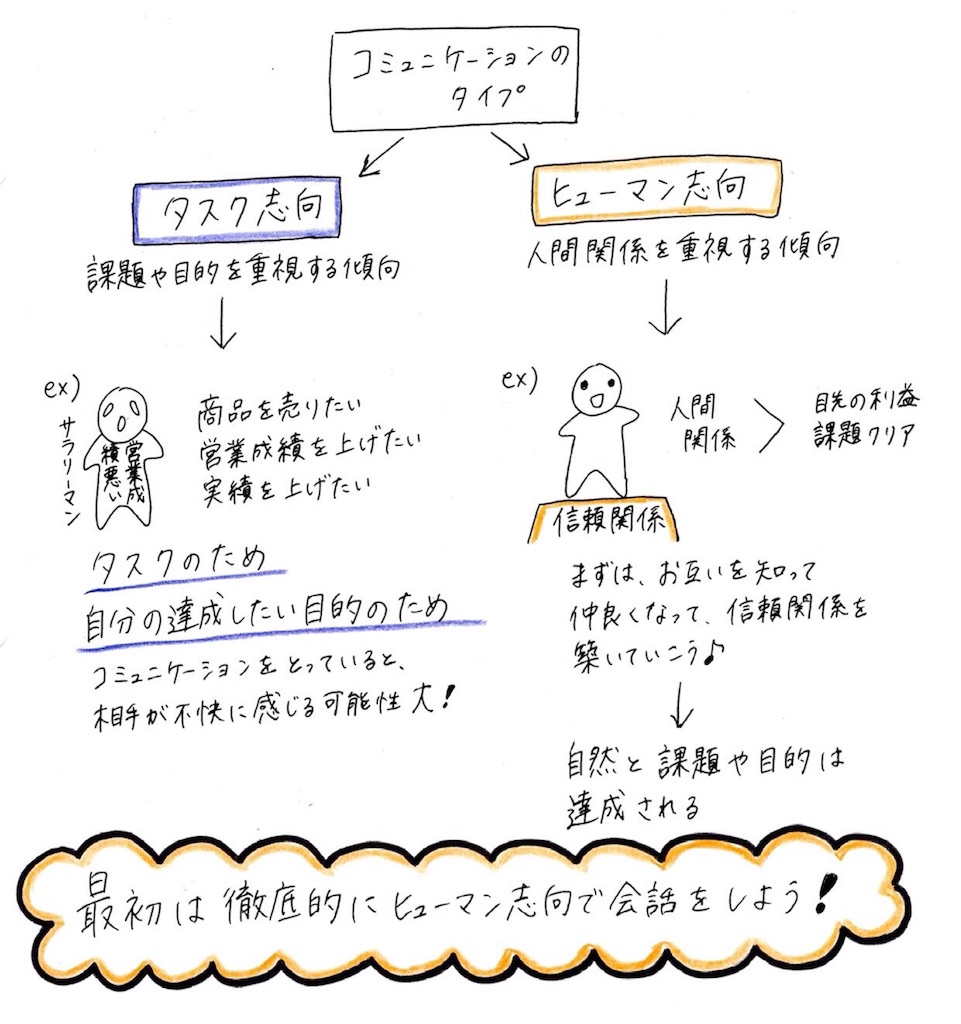 コミュニケーションの
タイプ
タスク志向
課題や目的を重視する傾向
ex)
サラリーマン
営業成
績悪い
商品を売りたい
営業成績を上げたい
実績を上げたい
タスクのため
自分の達成したい目的のため
コミュニケーションをとっていると、
相手が不快に感じる可能性大！
ヒューマン志向
人間関係を重視する傾向
ex)
人間
関係
＞
目先の利益
課題クリア
信頼関係
まずは、お互いを知って
仲良くなって、信頼関係を
築いていこう♪
自然と課題や目的は
達成される
最初は徹底的にヒューマン志向で会話をしよう！